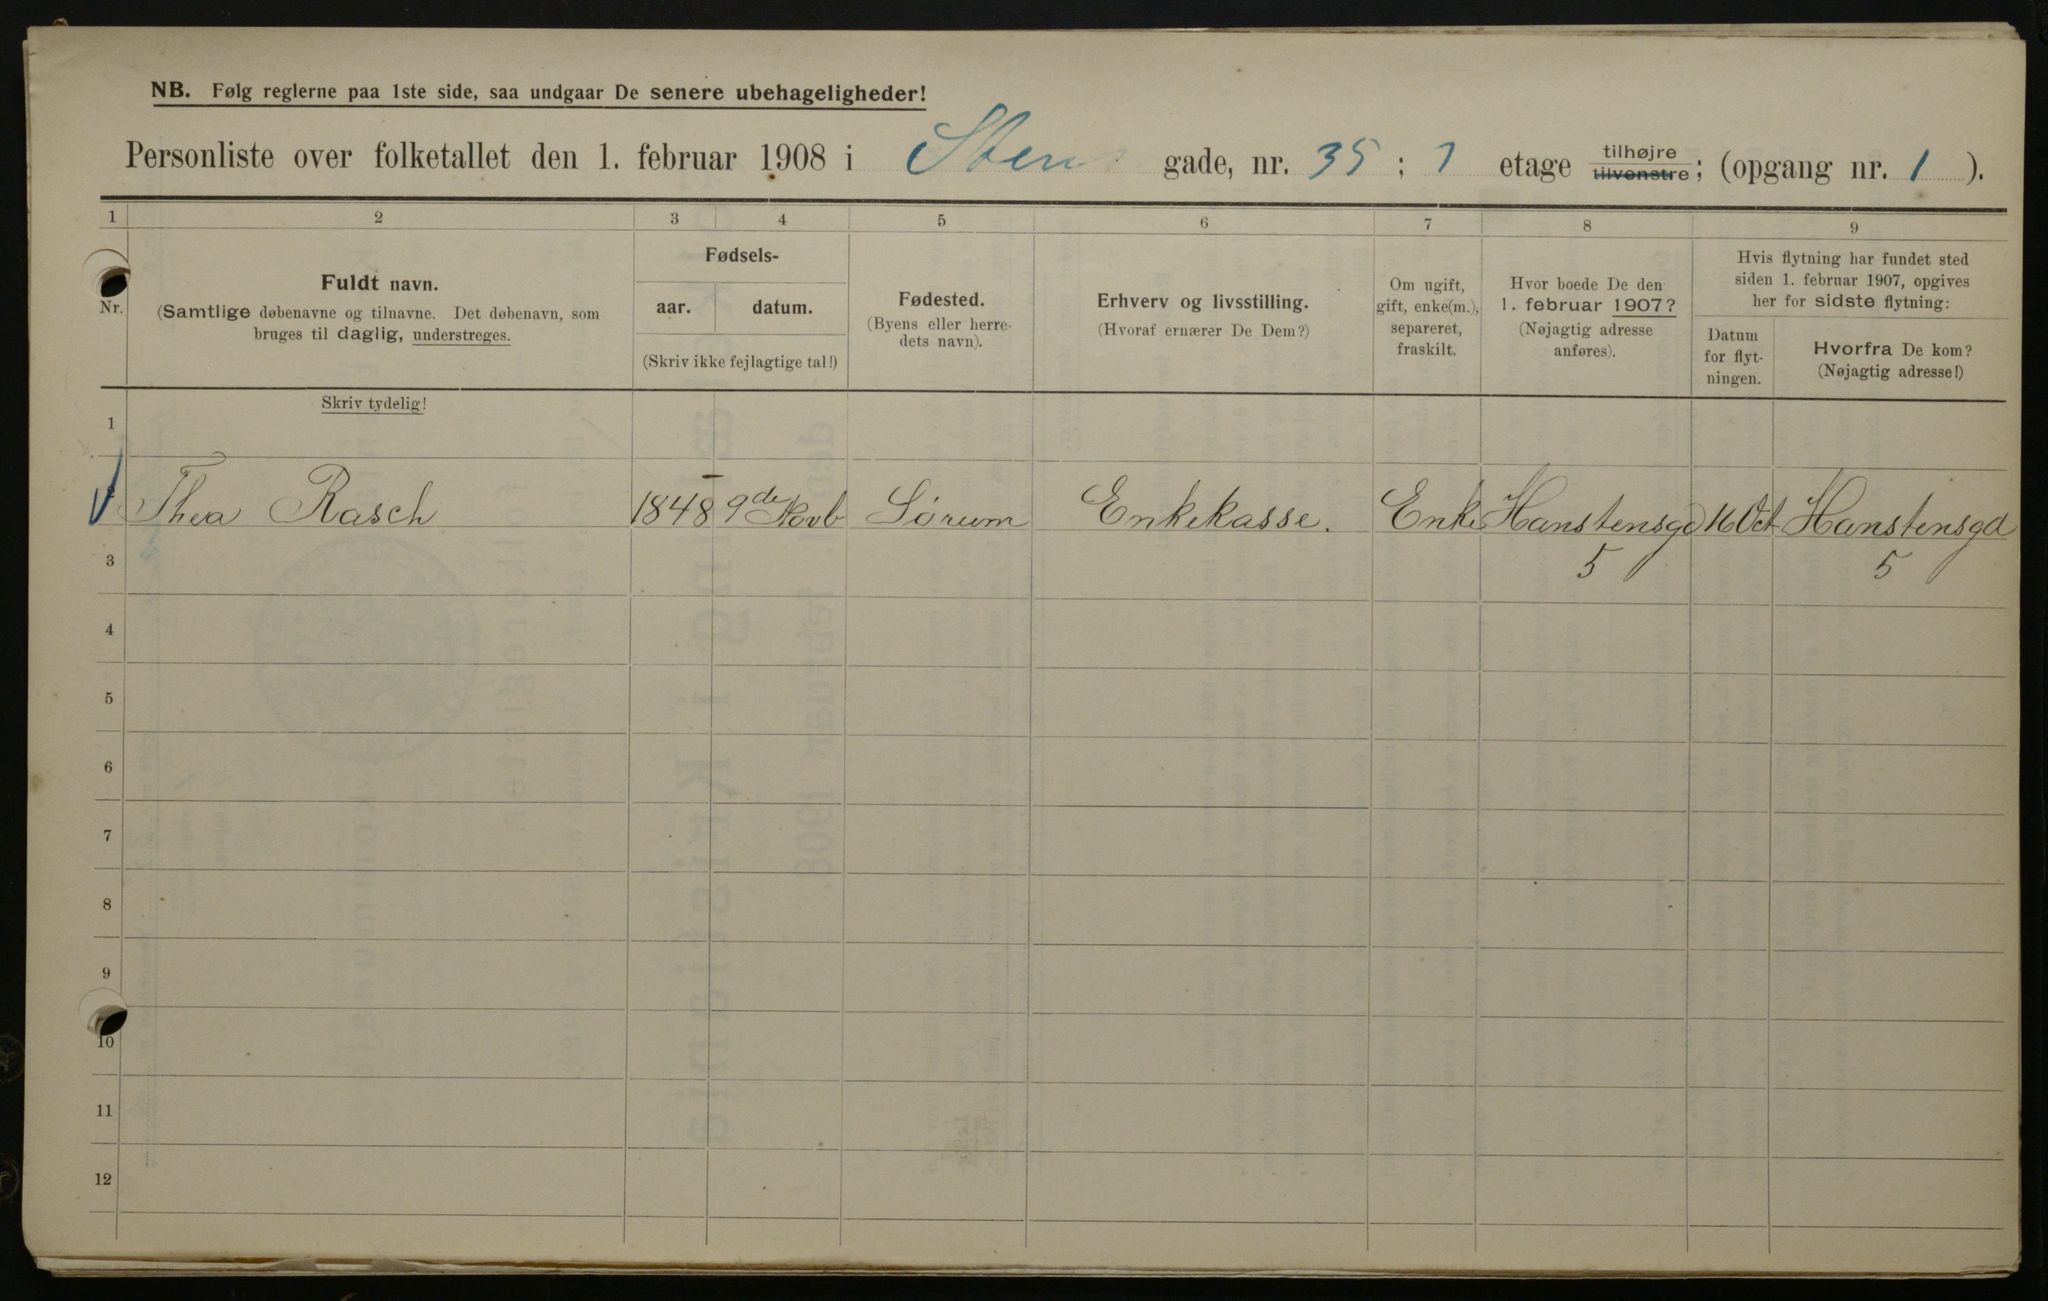 NB. Følg reglerne paa 1ste side, saa undgaar De senere ubehageligheder!
Personliste over folketallet den 1. februar 1908 i Stens gade, nr. 35 ; 1 etage tilhøjre tilvenstre; (opgang nr. 1 ).
1 2 3 4 5 6 7 8 9
Nr.
Fuldt navn.
(Samtlige døbenavne og tilnavne. Det døbenavn, som
bruges til daglig, understreges.
Fødsels-
aar. datum.
(Skriv ikke fejlagtige tal!)
Fødested.
(Byens eller herre-
dets navn).
Erhverv og livsstilling.
(Hvoraf ernærer De Dem?)
Om ugift,
gift, enke(m.),
separeret,
fraskilt.
Hvor boede De den
1. februar 1907?
(Nøjagtig adresse
anføres).
Hvis flytning har fundet sted
siden 1. februar 1907, opgives
her for sidste flytning:
Datum
for flyt-
ningen.
Hvorfra De kom?
(Nøjagtig adresse!)
Skriv tydelig!
1
Thea Rasch 1848 9de Novb Sörum Enkekasse. Enke Hanstensgd 16 Oct Hanstensgd
3 5 5
4
5
6
7
8
9
10
11
12